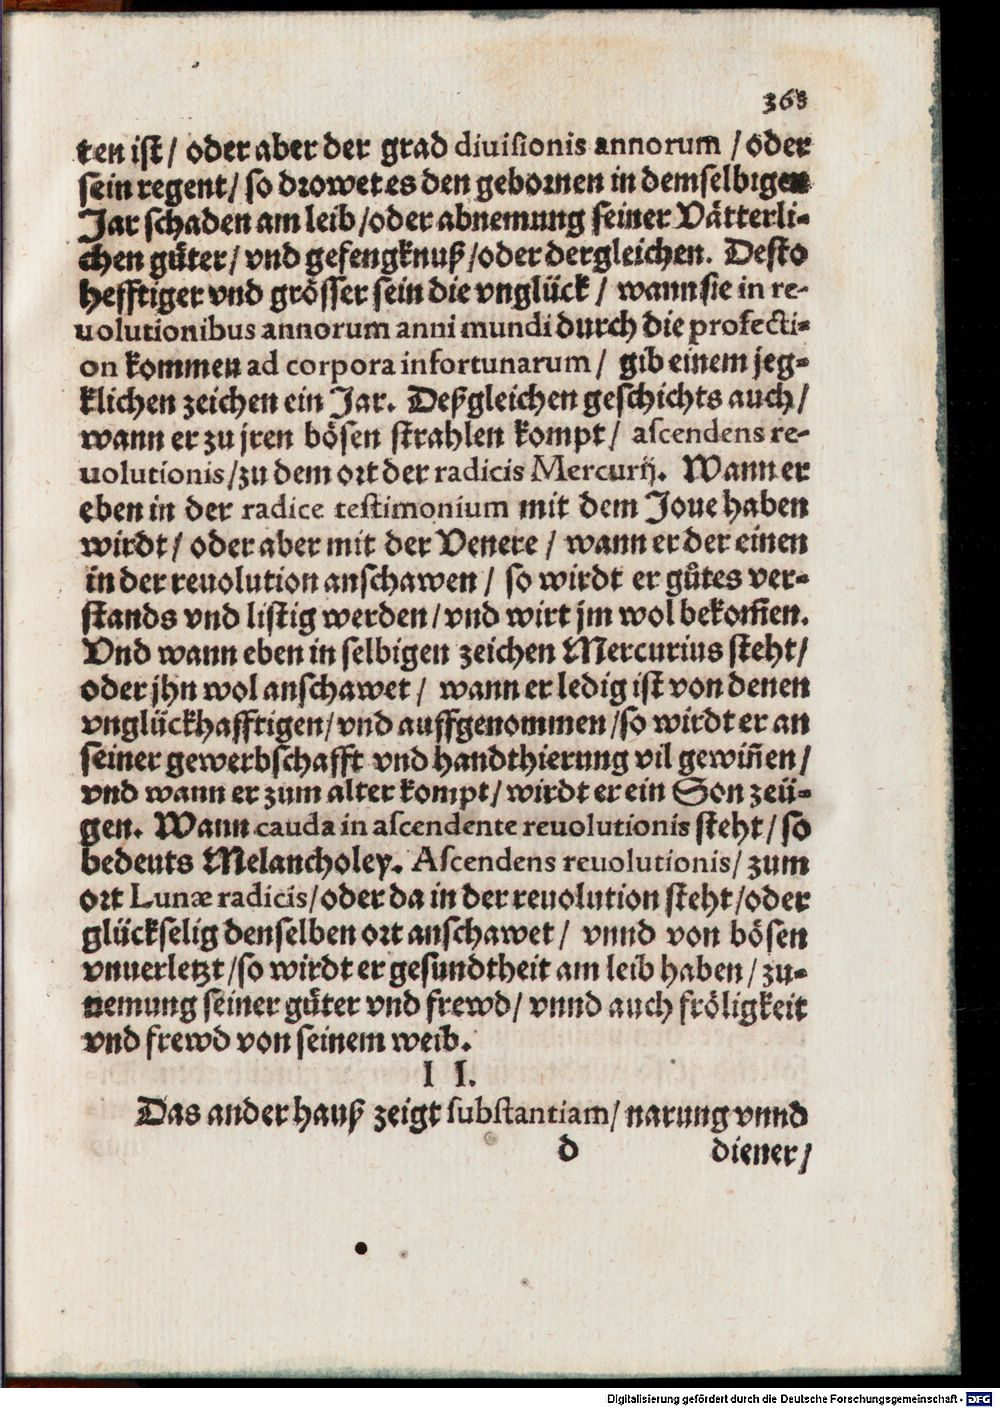 368
ten ist / oder aber der grad diuisionis annorum / oder
sein regent / so drowet es den gebornen in demselbigen
Jar schaden am leib / oder abnemung seiner Vätterli-
chen gůter / vnd gefengknuß / oder dergleichen. Desto
hefftiger vnd grösser sein die vnglück / wann sie in re-
uolutionibus annorum anni mundi durch die profecti-
on kommen ad corpora infortunarum / gib einem jeg-
klichen zeichen ein Jar. Deßgleichen geschichts auch /
wann er zu jren bösen strahlen kompt / ascendens re-
uolutionis / zu dem ort der radicis Mercurij. Wann er
eben in der radice testimonium mit dem Joue haben
wirdt / oder aber mit der Venere / wann er der einen
in der reuolution anschawen / so wirdt er gůtes ver-
stands vnd listig werden / vnd wirt jm wol bekom̃en.
Vnd wann eben in selbigen zeichen Mercurius steht /
oder jhn wol anschawet / wann er ledig ist von denen
vnglückhafftigen / vnd auffgenommen / so wirdt er an
seiner gewerbschafft vnd handthierung vil gewiñen /
vnd wann er zum alter kompt / wirdt er ein Son zeü-
gen. Wann cauda in ascendente reuolutionis steht / so
bedeuts Melancholey. Ascendens reuolutionis / zum
ort Lunæ radicis / oder da in der reuolution steht / oder
glückselig denselben ort anschawet / vnnd von bösen
vnuerletzt / so wirdt er gesundtheit am leib haben / zu-
nemung seiner gůter vnd frewd / vnnd auch fröligkeit
vnd frewd von seinem weib.
I I.
Das ander hauß zeigt substantiam / narung vnnd
d diener /
Digitalisierung gefördert durch die Deutsche Forschungsgemeinschaft - DFG